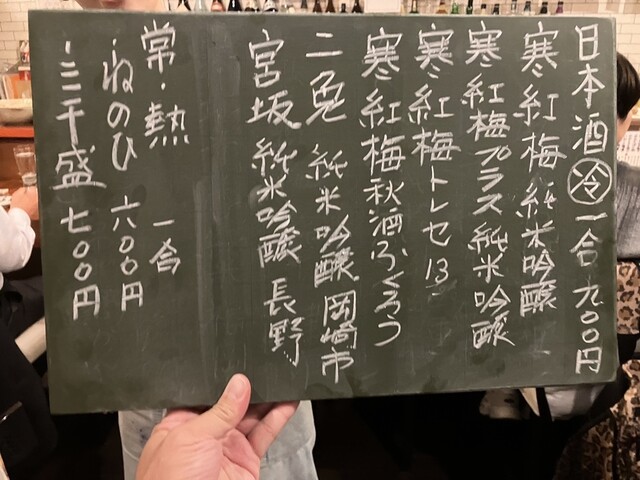 日本酒 冷 一合 九〇〇円
寒紅梅 純米吟醸
寒紅梅プラス 純米吟醸
寒紅梅トレセ13
寒紅梅秋酒ふくろう
二兎 純米吟醸 岡崎市
宮坂 純米吟醸 長野
常・熱 一合
・ねのひ 六〇〇円
・三千盛 七〇〇円